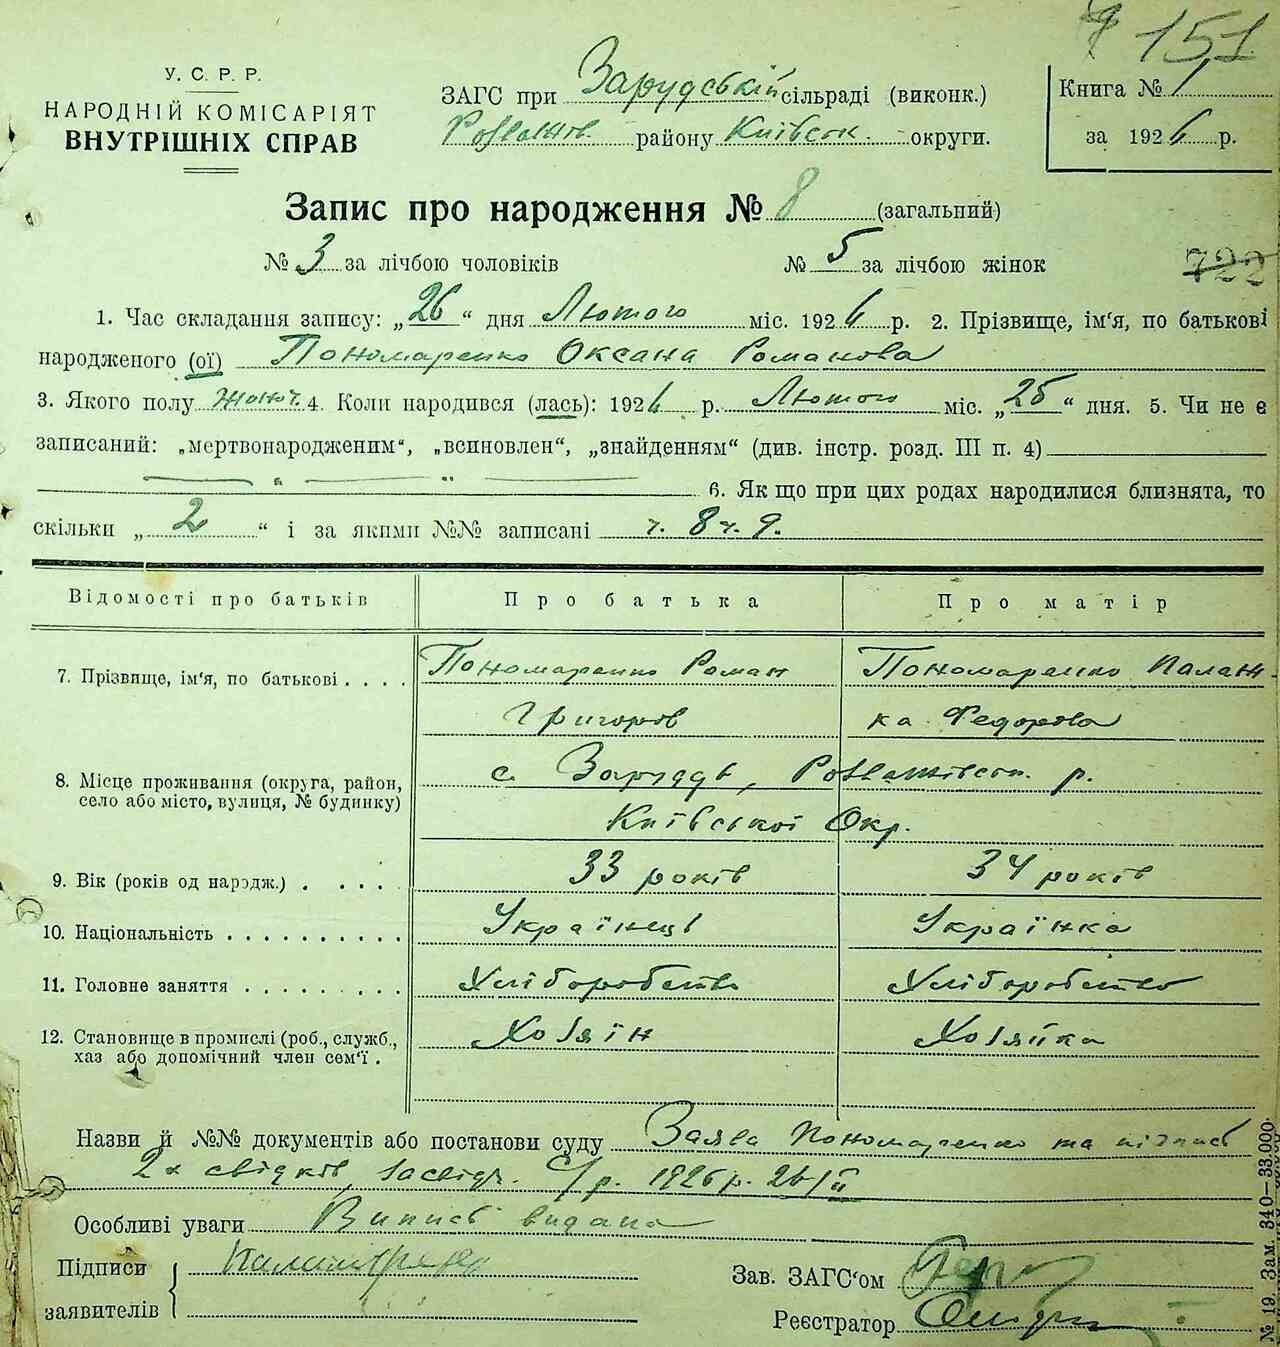 151
У. С. Р. Р.
НАРОДНІЙ КОМІСАРІЯТ
ВНУТРІШНІХ СПРАВ
ЗАГС при Зарудській сільраді (виконк.)
району Київськ. округи.
Книга № 1
за 1926 р.
Запис про народження № 8 (загальний)
№ 3 за лічбою чоловіків № 5 за лічбою жінок
722
1. Час складання запису: „26“ дня Лютого міс. 1926 р. 2. Прізвище, ім'я, по батькові
народженого (ої) Пономаренко Оксана Романова
3. Якого полу жіноч. 4. Коли народився (лась): 1926 р. Лютого міс. „25“ дня. 5. Чи не є
записаний: „мертвонародженим“, „всиновлен“, „знайденням“ (див. інстр. розд. III п. 4)
6. Як що при цих родах народилися близнята, то
скільки „2“ і за якими №№ записані ч. 8 ч. 9.
Відомості про батьків Про батька Про матір
7. Прізвище, ім'я, по батькові . . . . Пономаренко Роман Пономаренко Палаж-
Григоров ка Федорова
8. Місце проживання (округа, район, село або місто, вулиця, № будинку) с. Заруддє, р.
Київської Окр.
9. Вік (років од народж.) . . . . . 33 років 34 років
10. Національність . . . . . . . . . . Українець Українка
11. Головне заняття . . . . . . . . . Хліборобство Хліборобство
12. Становище в промислі (роб., служб., хаз або допомічний член сем'ї . Хозяїн Хозяйка
Назви й №№ документів або постанови суду Заява Пономаренко та підписі
2х свідків, засвідч. С/р. 1926 р. 26/II
Особливі уваги Випись видана
Підписи
заявителів
Зав. ЗАГС'ом
Реєстратор
№ 19. Зам. 340—33.000.